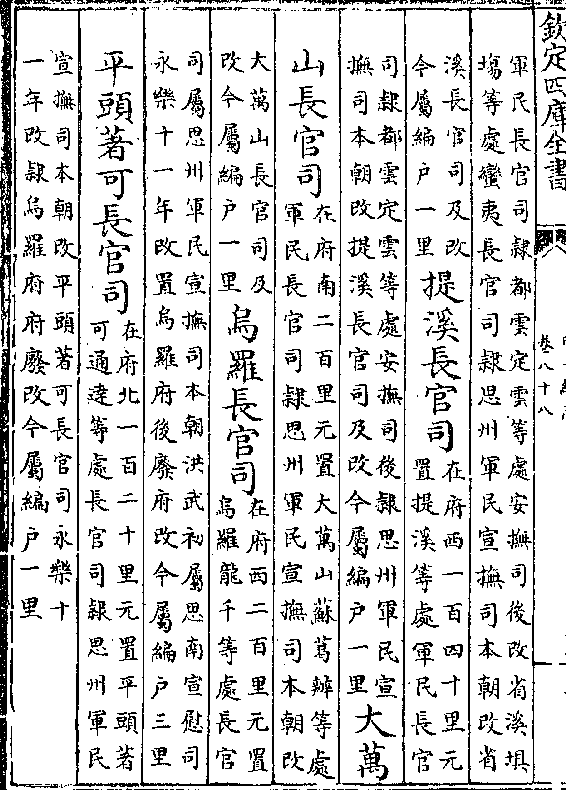 欽定四庫全書
卷八十八
軍民長官司隸都雲定雲等處安撫司後改省溪埧
塲等處蠻夷長官司隸思州軍民宣撫司本朝改省
溪長官司及改
今屬編户一里
提溪長官司
在府西一百四十里元
置提溪等處軍民長官
司隸都雲定雲等處安撫司後隸思州軍民宣
撫司本朝改提溪長官司及改今屬編户一里
大萬
山長官司
在府南二百里元置大萬山蘇葛辦等處
軍民長官司隸思州軍民宣撫司本朝改
大萬山長官司及
改今屬編户一里
烏羅長官司
在府西二百里元置
烏羅龍千等處長官
司屬思州軍民宣撫司本朝洪武初屬思南宣慰司
永樂十一年改置烏羅府後廢府改今屬編户三里
平頭著可長官司
在府北一百二十里元置平頭著
可通達等處長官司隸思州軍民
宣撫司本朝改平頭著可長官司永樂十
一年改隸烏羅府府廢改今屬編户一里